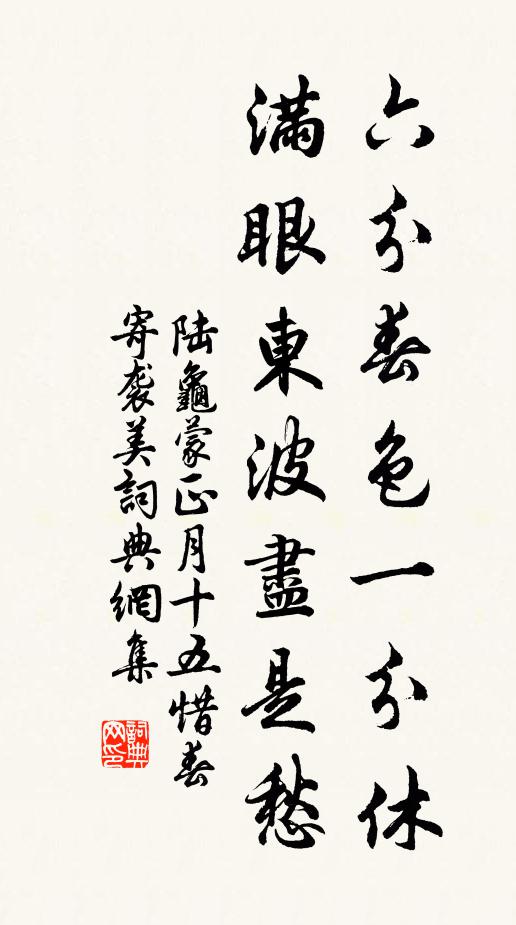 六分春色一分休
滿眼東波盡是愁
陆龜蒙正月十五惜春
寄袭美詞典網集
詞典
网印